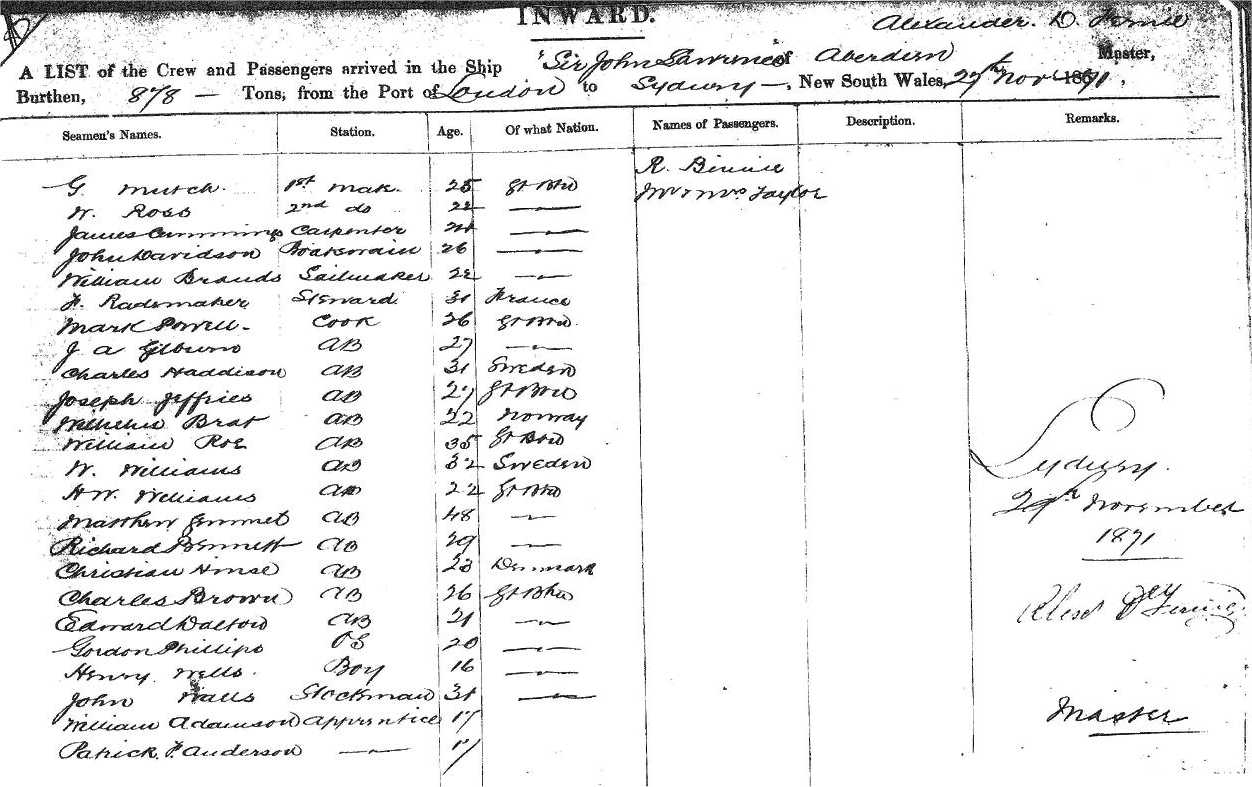 INWARD.
Alexander. D.
A LIST of the Crew and Passengers arrived in the Ship "Sir John Lawrence of Aberdeen Master,
Burthen, 878 — Tons, from the Port of London to Sydney —, New South Wales, 27th Nov 1871,
Seamen's Names. Station. Age. Of what Nation. Names of Passengers. Description. Remarks.
R. Binnie
G Mutch 1st Mate 25 Gt Btn Mr & Mrs Taylor
W. Ross 2nd do 22 —
James Cummings Carpenter —
John Davidson Boatswain 26 —
William Brands Sailmaker 22 —
F. Rademaker Steward 31 France
Mark Powell Cook 26 Gt Btn
J A AB 27 —
Charles Haddison AB 31 Sweden
Joseph Jeffries AB 27 Gt Btn
Wilhelm Brat AB 22 Norway
William Roe AB 35 Gt Btn
W. Williams AB 32 Sweden
HW. Williams AB 22 Gt Btn
Matthew Jemmet AB 48 —
Richard Bennett AB 29 —
Christian AB 23 Denmark
Charles Brown AB 26 Gt Btn
Edward Dalton AB 21 —
Gordon Phillips OS 20 —
Henry Wells. Boy 16 —
John Walls Stockman 31 —
William Adamson Apprentice 17
Patrick F. Anderson — 17
Sydney.
November
1871
Master